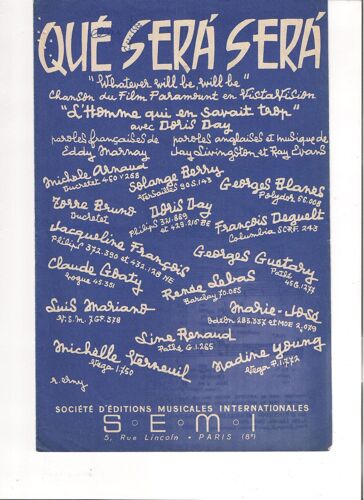 QUÉ SERÁ SERÁ
"Whatever will be, will be"
Chanson du Film Paramount en VistaVision
"L'Homme qui en savait trop"
avec Doris Day
paroles françaises de
Eddy Marnay
paroles anglaises et musique de
Jay Livingston et Ray Evans
Michèle Arnaud
Ducretet 460 V 258
Solange Berry
Versailles 90 S. 143
Georges Blanes
Polydor 66.008
Zorre Bruno
Ducretet
Doris Day
Philips 321.889
et 429.215 BE
François Deguelt
Columbia SCRF. 243
Jacqueline François
Philips 372.390 et 432.128 NE
Georges Guetary
Pathé
45 G. 1273
Claude Goaty
Vogue 45.351
Renée Lebas
Barclay 70.055
Luis Mariano
V.S.M. 7 GF. 378
Marie-José
Odéon 285.337 et MOE 2.079
Line Renaud
Pathé G. 1265
Michelle Verneuil
Véga 1.750
Nadine Young
Véga P. 1.772
SOCIÉTÉ D'ÉDITIONS MUSICALES INTERNATIONALES
S.E.M.I
5, Rue Lincoln - PARIS (8e)